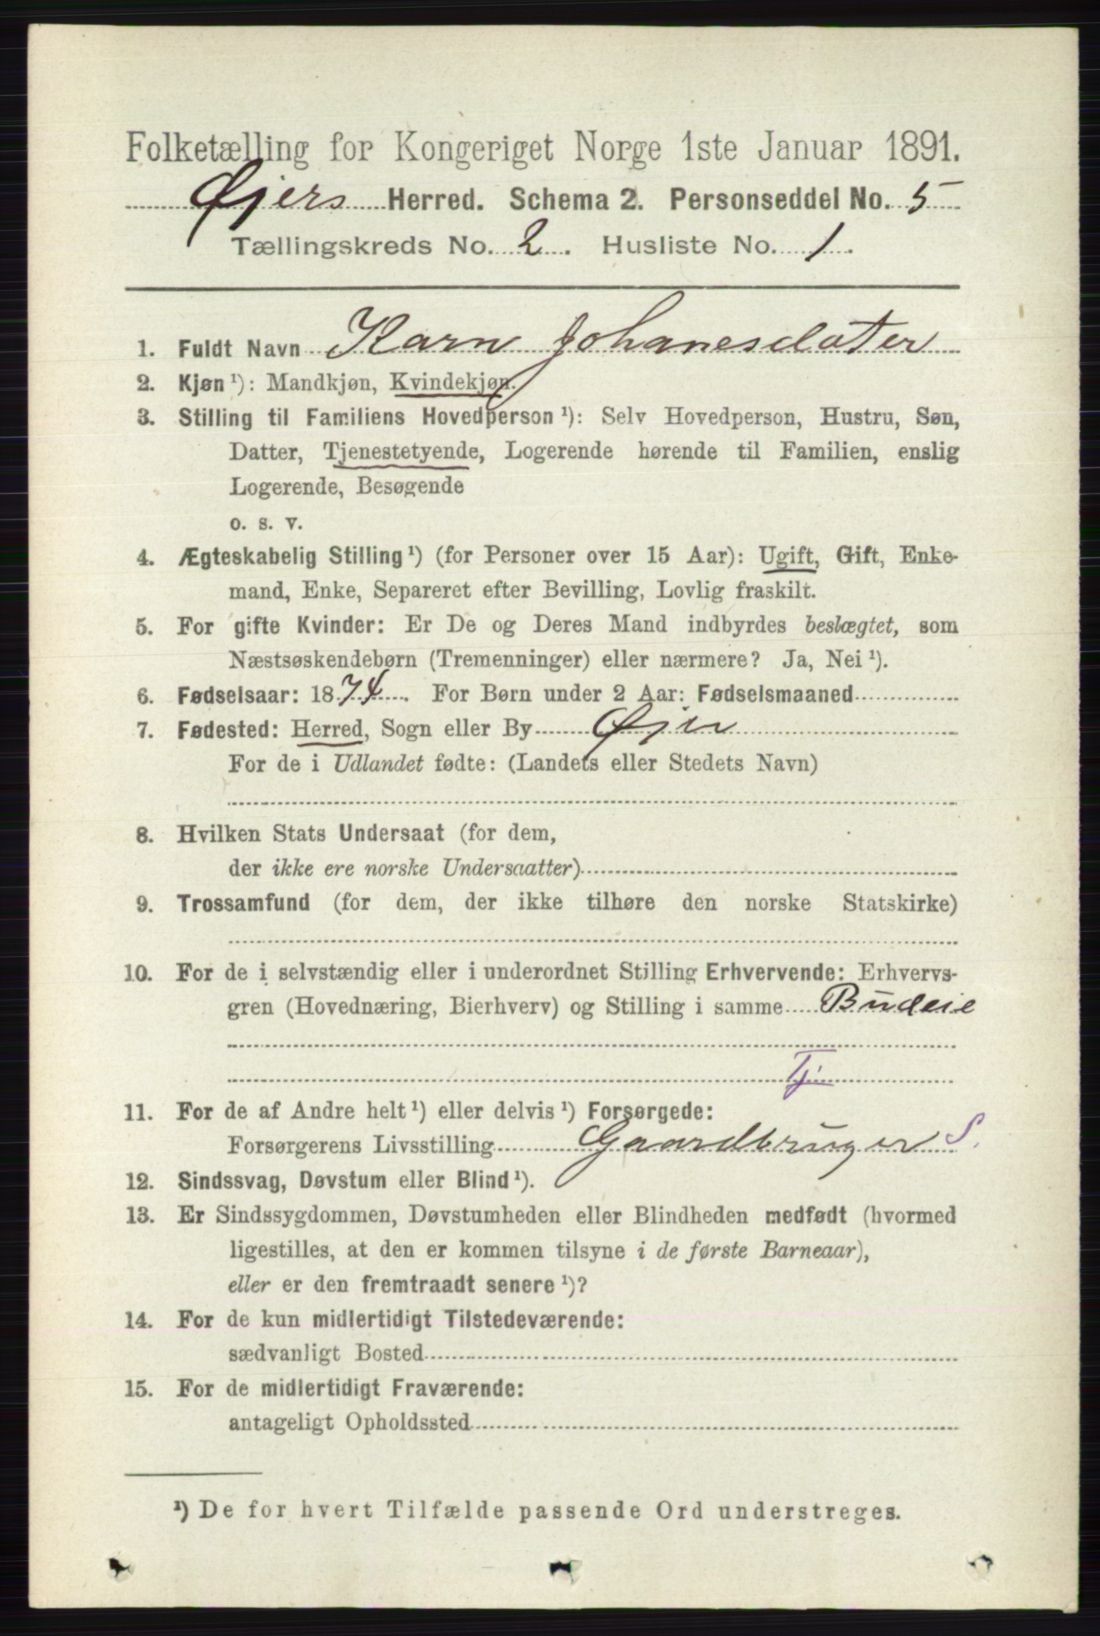 Folketælling for Kongeriget Norge 1ste Januar 1891.
Øjers Herred. Schema 2. Personseddel No. 5
Tællingskreds No. 2. Husliste No. 1.
1. Fuldt Navn Karn Johanesdater
2. Kjøn¹): Mandkjøn, Kvindekjøn.
3. Stilling til Familiens Hovedperson¹): Selv Hovedperson, Hustru, Søn,
Datter, Tjenestetyende, Logerende hørende til Familien, enslig
Logerende, Besøgende
o. s. v.
4. Ægteskabelig Stilling¹) (for Personer over 15 Aar): Ugift, Gift, Enke-
mand, Enke, Separeret efter Bevilling, Lovlig fraskilt.
5. For gifte Kvinder: Er De og Deres Mand indbyrdes beslægtet, som
Næstsøskendebørn (Tremenninger) eller nærmere? Ja, Nei¹).
6. Fødselsaar: 1874. For Børn under 2 Aar: Fødselsmaaned
7. Fødested: Herred, Sogn eller By Øjer
For de i Udlandet fødte: (Landets eller Stedets Navn)
8. Hvilken Stats Undersaat (for dem,
der ikke ere norske Undersaatter)
9. Trossamfund (for dem, der ikke tilhøre den norske Statskirke)
10. For de i selvstændig eller i underordnet Stilling Erhvervende: Erhvervs-
gren (Hovednæring, Bierhverv) og Stilling i samme Budeie
Tj.
11. For de af Andre helt¹) eller delvis¹) Forsørgede:
Forsørgerens Livsstilling Gaardbruger S.
12. Sindssvag, Døvstum eller Blind¹).
13. Er Sindssygdommen, Døvstumheden eller Blindheden medfødt (hvormed
ligestilles, at den er kommen tilsyne i de første Barneaar),
eller er den fremtraadt senere¹)?
14. For de kun midlertidigt Tilstedeværende:
sædvanligt Bosted
15. For de midlertidigt Fraværende:
antageligt Opholdssted
¹) De for hvert Tilfælde passende Ord understreges.